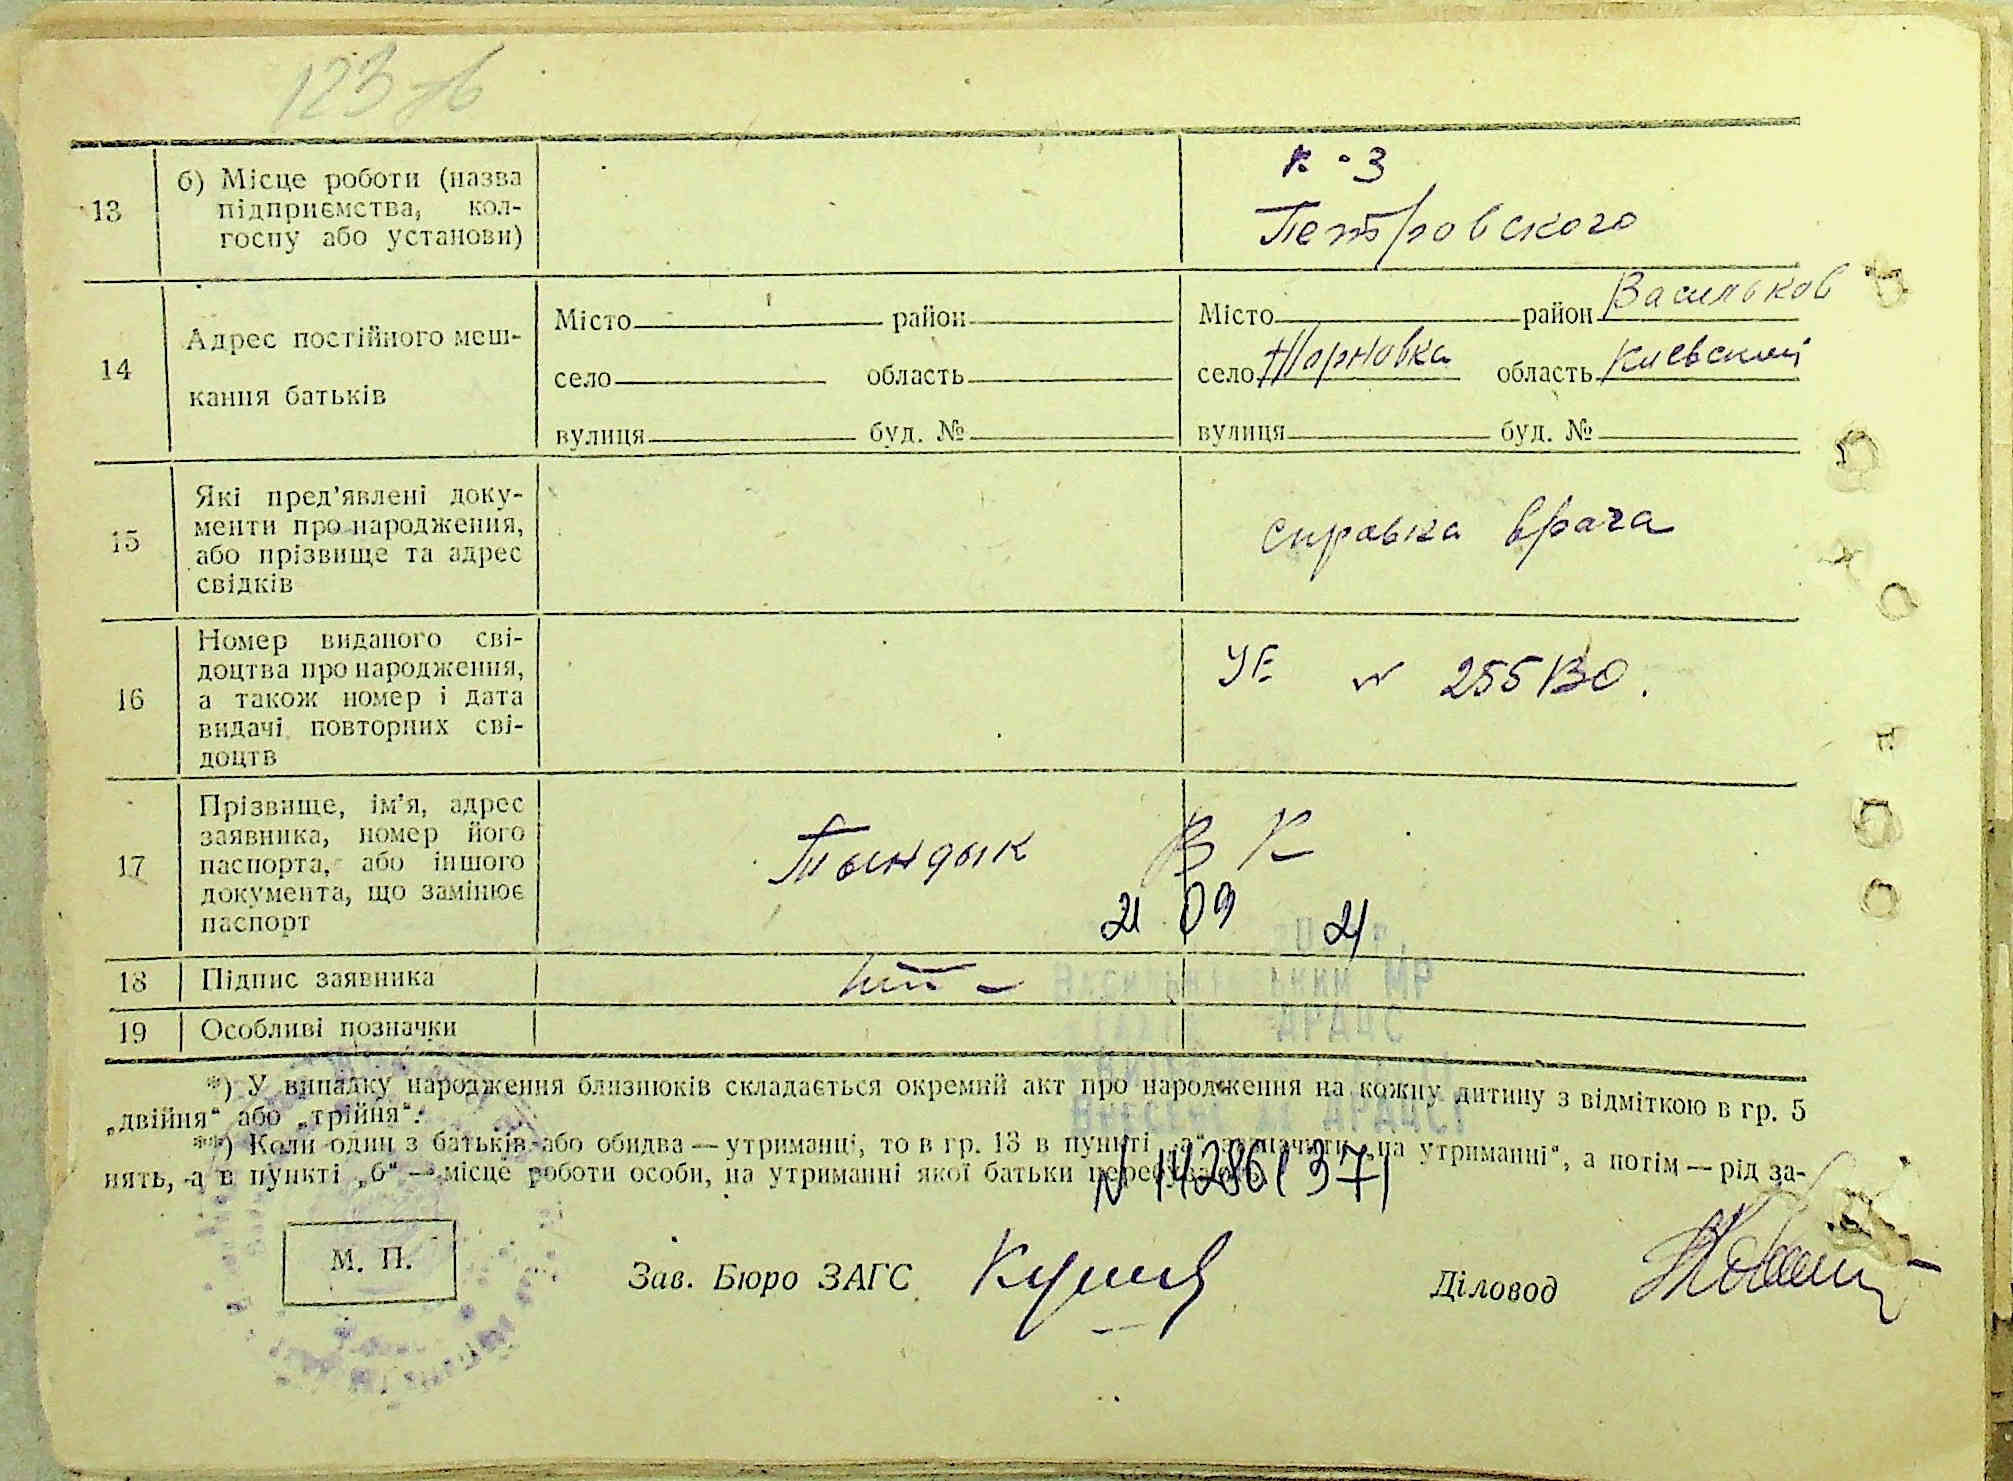 123 зв
13
б) Місце роботи (назва
підприємства, кол-
госпу або установи)
к-з
Петровского
14
Адрес постійного меш-
кання батьків
Місто район
село область
вулиця буд. №
Місто район Васильков
село Торновка область Киевский
вулиця буд. №
15
Які пред'явлені доку-
менти про народження,
або прізвище та адрес
свідків
справка врача
16
Номер виданого сві-
доцтва про народження,
а також номер і дата
видачі повторних сві-
доцтв
УЕ № 255130.
17
Прізвище, ім'я, адрес
заявника, номер його
паспорта, або іншого
документа, що замінює
паспорт
Тындык В К
21 09 21
18 Підпис заявника
19 Особливі позначки
*) У випадку народження близнюків складається окремий акт про народження на кожну дитину з відміткою в гр. 5
„двійня“ або „трійня“.
**) Коли один з батьків або обидва — утриманці, то в гр. 13 в пункті „а“ зазначити „на утриманні“, а потім — рід за-
нять, а в пункті „б“ — місце роботи особи, на утриманні якої батьки перебувають.
М. П.
Зав. Бюро ЗАГС
Діловод